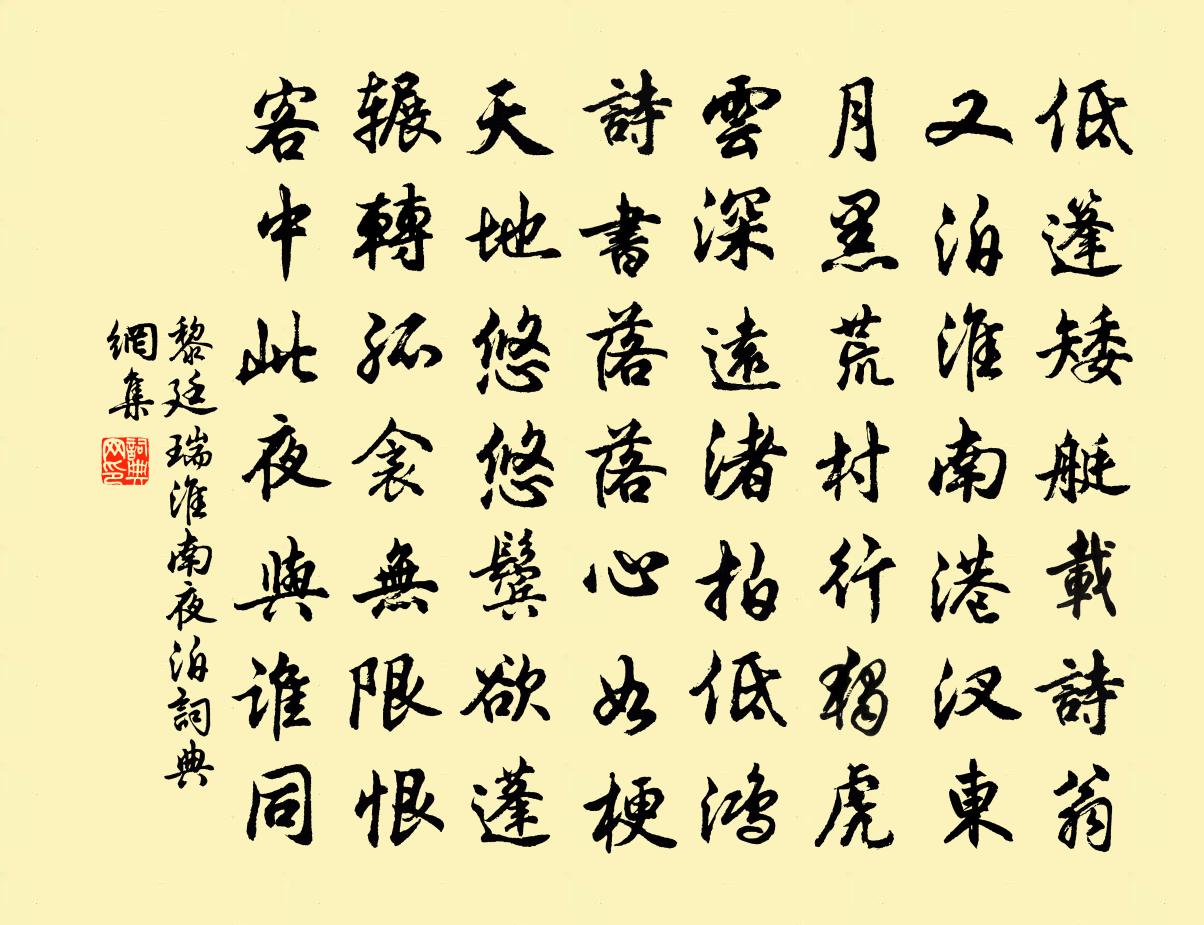 低蓬矮艇載詩翁
又泊淮南港汊東
月黑荒村行獨虎
雲深遠渚拍低鴻
詩書落落心如梗
天地悠悠鬢欲蓬
辗轉孤衾無限恨
客中此夜與誰同
黎廷瑞淮南夜泊詞典
網集
詞典
网印